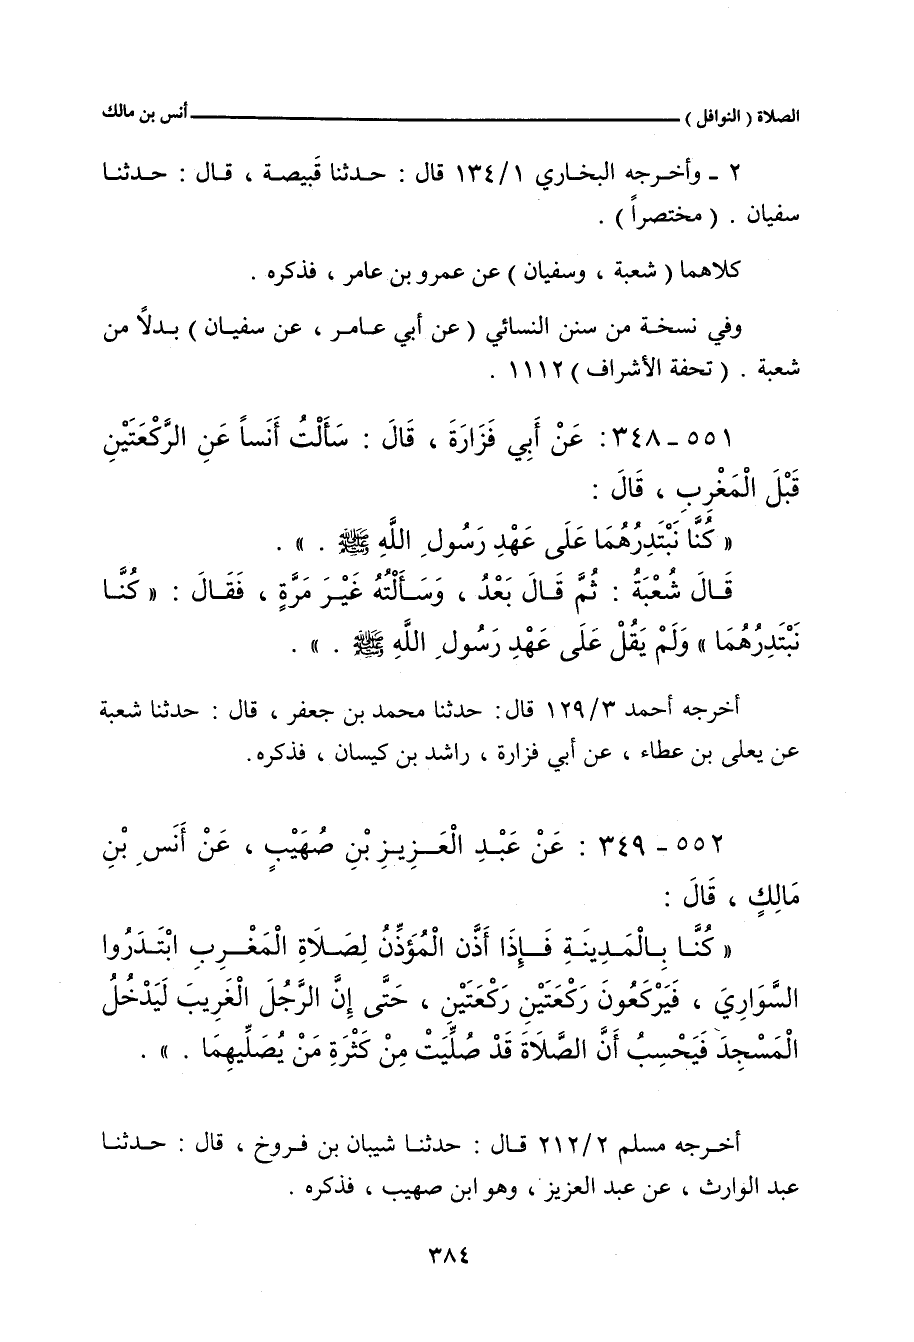 الصلاة ( النوافل ) ــــــــــــــــــــ أنس بن مالك
٢ ـ وأخرجه البخاري ١٣٤/١ قال : حدثنا قَبيصة ، قال : حدثنا
سفيان . ( مختصراً ) .
كلاهما ( شعبة ، وسفيان ) عن عمرو بن عامر ، فذكره .
وفي نسخة من سنن النسائي ( عن أبي عامر ، عن سفيان ) بدلاً من
شعبة . ( تحفة الأشراف ) ١١١٢ .
٥٥١ ـ ٣٤٨ : عَنْ أَبِي فَزَارَةَ ، قَالَ : سَأَلْتُ أَنَساً عَنِ الرَّكْعَتَيْنِ
قَبْلَ الْمَغْرِبِ ، قَالَ :
« كُنَّا نَبْتَدِرُهُمَا عَلَى عَهْدِ رَسُولِ اللَّهِ ﷺ . » .
قَالَ شُعْبَةُ : ثُمَّ قَالَ بَعْدُ ، وَسَأَلْتُهُ غَيْرَ مَرَّةٍ ، فَقَالَ : « كُنَّا
نَبْتَدِرُهُمَا » وَلَمْ يَقُلْ عَلَى عَهْدِ رَسُولِ اللَّهِ ﷺ . » .
أخرجه أحمد ١٢٩/٣ قال : حدثنا محمد بن جعفر ، قال : حدثنا شعبة
عن يعلى بن عطاء ، عن أبي فزارة ، راشد بن كيسان ، فذكره.
٥٥٢ ـ ٣٤٩ : عَنْ عَبْدِ الْعَزِيزِ بْنِ صُهَيْبٍ ، عَنْ أَنَسِ بْنِ
مَالِكٍ ، قَالَ :
« كُنَّا بِالْمَدِينَةِ فَإِذَا أَذَّنَ الْمُؤَذِّنُ لِصَلَاةِ الْمَغْرِبِ ابْتَدَرُوا
السَّوَارِيَ ، فَيَرْكَعُونَ رَكْعَتَيْنِ رَكْعَتَيْنِ ، حَتَّى إِنَّ الرَّجُلَ الْغَرِيبَ لَيَدْخُلُ
الْمَسْجِدَ فَيَحْسِبُ أَنَّ الصَّلَاةَ قَدْ صُلِّيَتْ مِنْ كَثْرَةِ مَنْ يُصَلِّيهِمَا . » .
أخرجه مسلم ٢١٢/٢ قال : حدثنا شيبان بن فروخ ، قال : حدثنا
عبد الوارث ، عن عبد العزيز ، وهو ابن صهيب ، فذكره .
٣٨٤